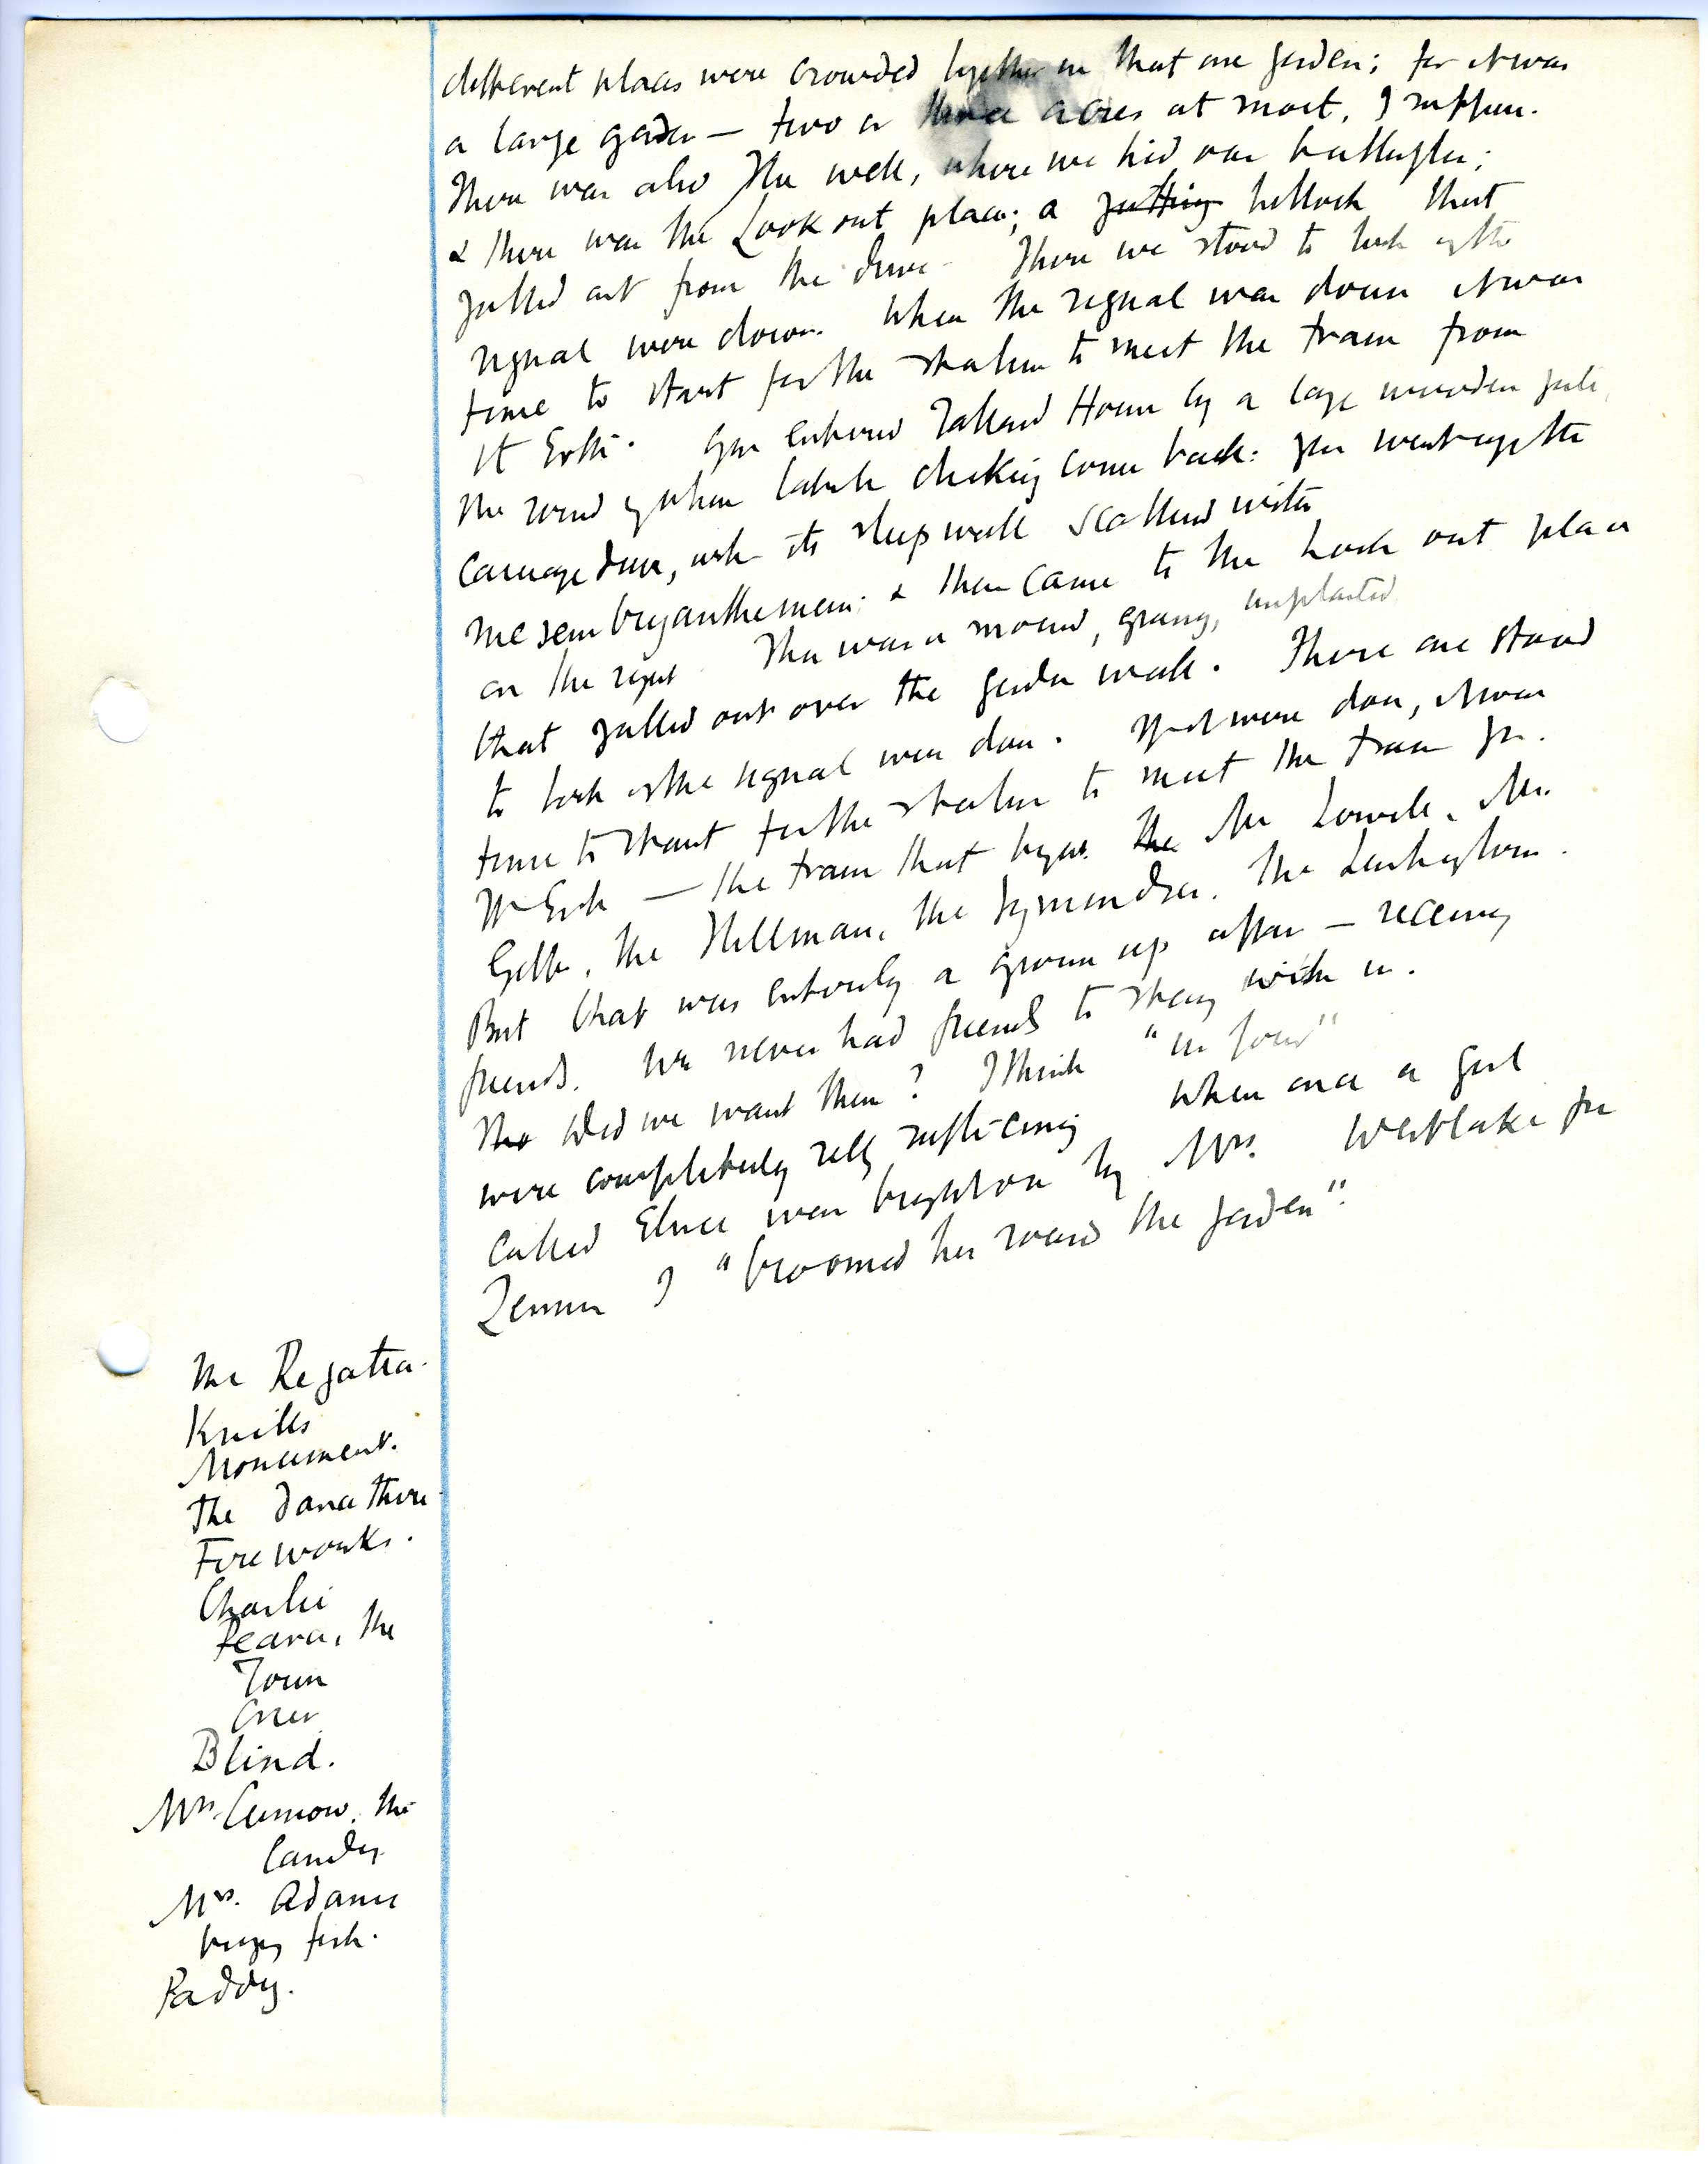 different places were crowded together in that one garden; for it was
a large garden — two or three acres at most, I suppose.
There was also the well, where we hid our
& there was the Look out place; a jutting hillock that
jutted out from the drive. There we stood to look if the
signal were down. When the signal was down it was
time to start for the station to meet the train from
St Erth. You entered Talland House by a large wooden gate,
the sound of whose latch clicking comes back: you went up the
carriage drive, with its steep wall scattered with
mesembryanthemum; & then came to the Look out place
on the right. This was a mound, grassy, unplanted
that jutted out over the garden wall. There one stood
to look if the signal was down. If it were down, it was
time to start for the station to meet the train fr.
St Erth — the train that brought the Mr Lowell, Mr.
Gibbs, the Stillmans, the Symondses, the Lushingtons.
But that was entirely a grown up affair — receiving
friends. We never had friends to stay with us.
Tho Did we want them? I think "us four"
were completely self sufficing When once a girl
called Elsie was brought on by Mrs. Westlake for
I "broomed her round the garden".
The Regatta.
Knills
Monument.
The dance there
Fireworks.
Charlie
Pearce, the
Town
Crier
Blind.
Mrs. Curnow, the
laundry
Mrs. Adams
brings fish.
Paddy.